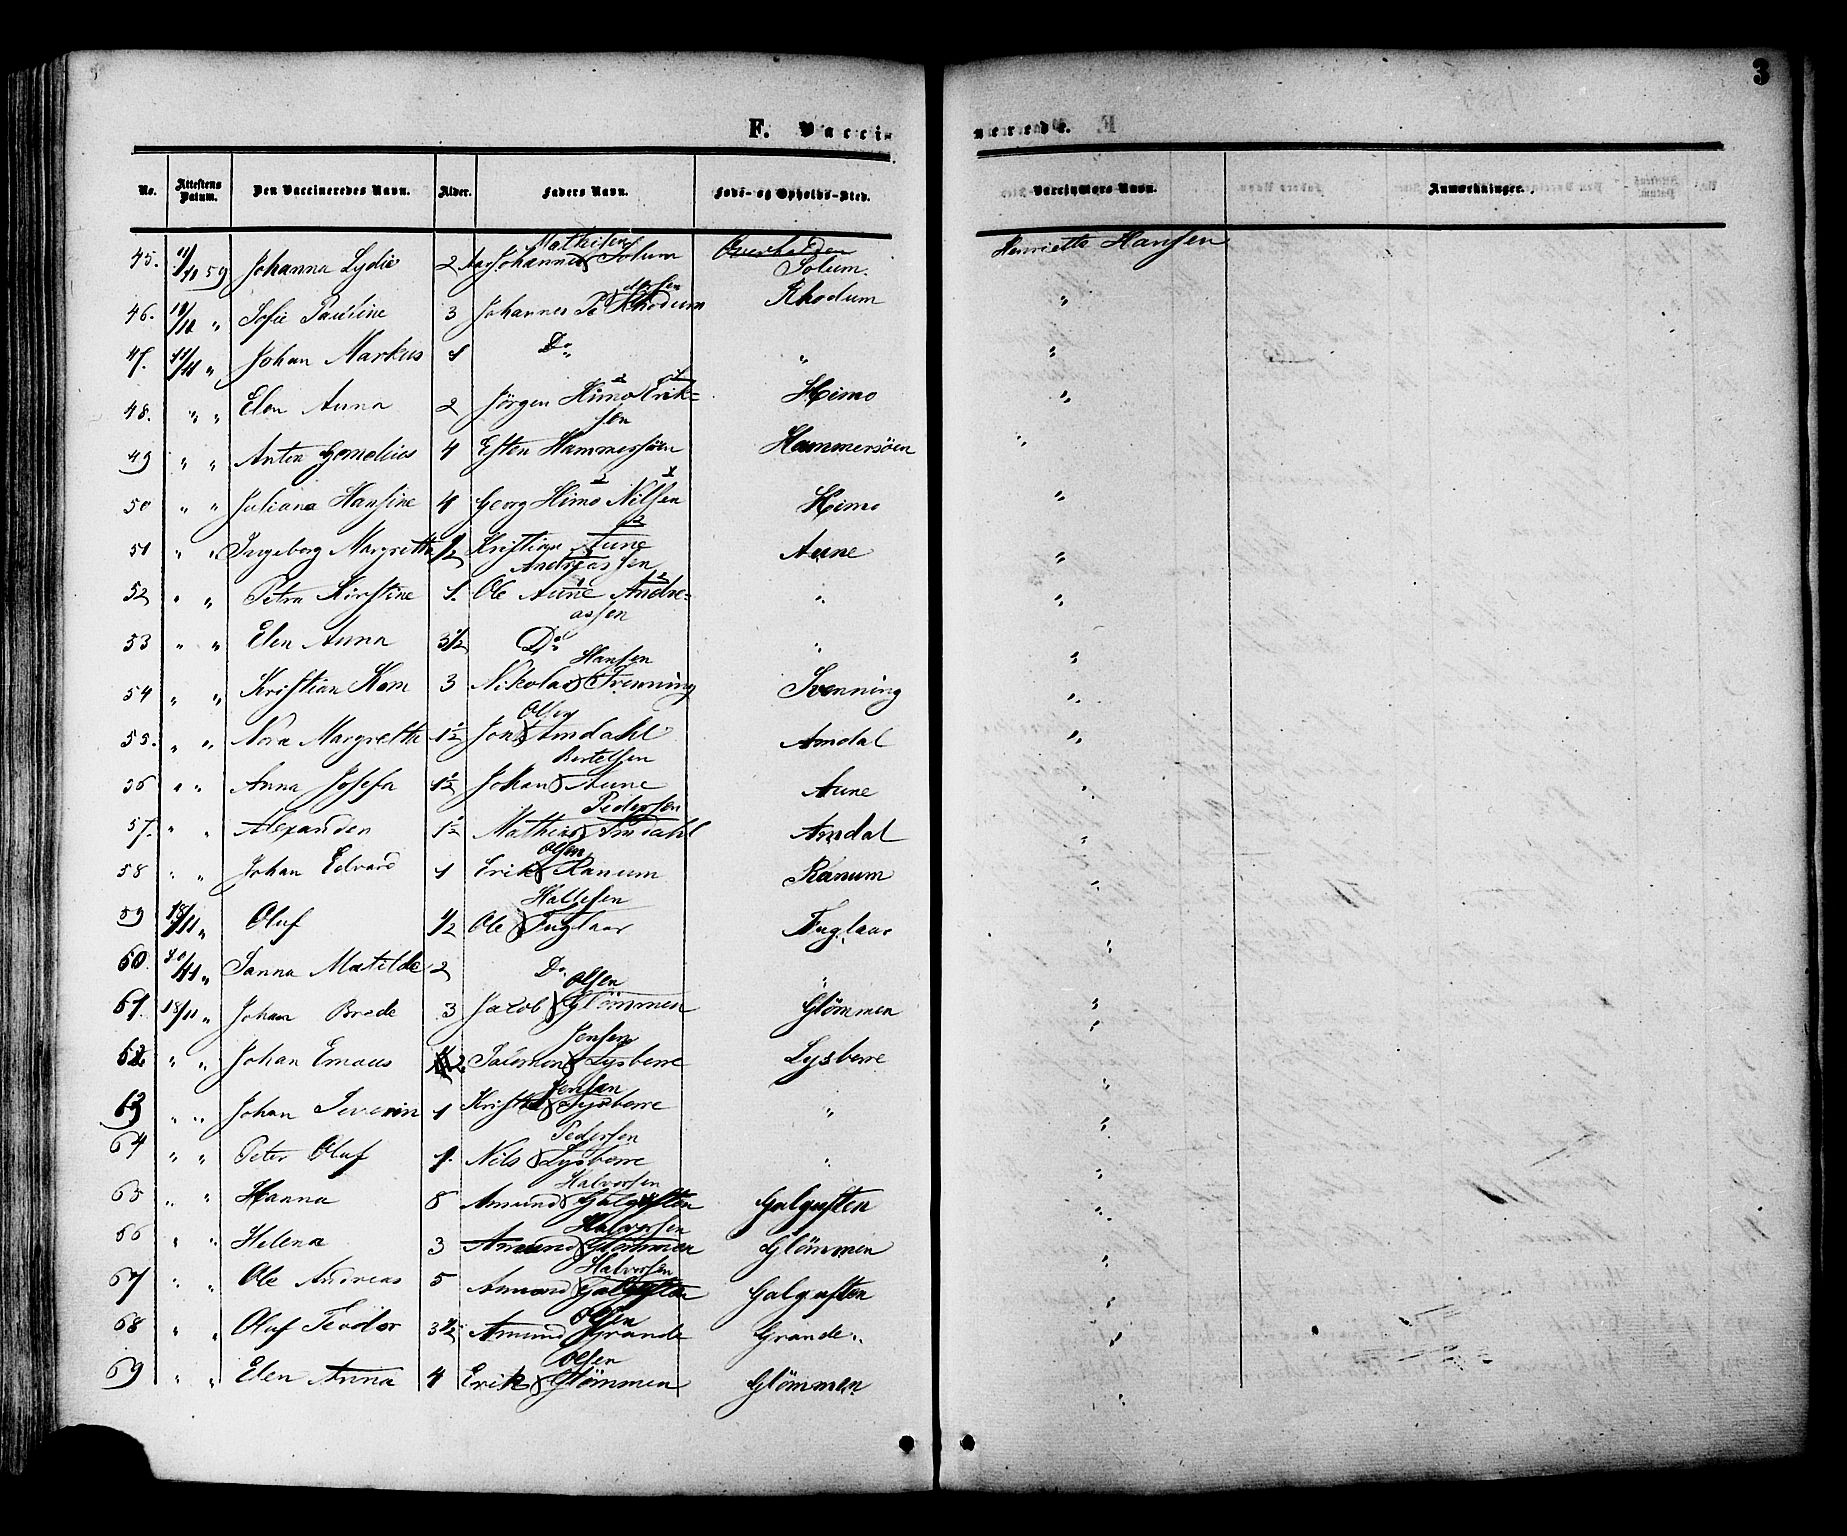 3
F. Vacci-
nerede.
No. Attestens Datum. Den Vaccineredes Navn. Alder. Faders Navn. Føde- og Opholds-Sted. Vaccinators Navn. Anmærkninger.
45. 11/11 59 Johanna Lydie 2 Aar Johannes Mathisen Solum Overhalden Solum. Henriette Hansen
46. " Sofie Pauline 3 Johannes Rhodum "
47. 11/11 " Johan Markus 1 Do " " "
48. " " Elen Anna 2 Jörgen Himo Erik=sen Himo "
49 " " Anten 4 Esten Hammersöen Hammersöen "
50 " " Juliana Hansine 4 Georg Himo Nilsen Himo "
51 " " Ingeborg Margretha 1/2 Kristian Aune Andreassen Aune "
52 " " Petra Kirstine 1. Ole Aune Andre=assen " "
53 " " Elen Anna 3 1/2 Do " "
54 " " Kristian Kom 3 Nikolai Hansen Svenning Svenning "
55. " " Nora Margretha 1 1/2 Jon Olsen Amdahl Amdal "
56 " " Anna Josefa 1 1/2 Johan Bertelsen Aune Aune "
57. " " Alexander 1 1/2 Mathias Pedersen Amdahl Amdal "
58 " " Johan Edvard 1 Erik Olsen Ranum Ranum "
59 18/11 " Oluf 1/2 Ole Hallesen Fuglaar Fuglaar "
60. " Janna Matilde 2 Do " "
61. 18/11 " Johan Brede 3 Jacob Olsen Glömmen Glömmen "
62 " " Johan Emaus Salomon Jensen Lysberre Lysberre "
63 " " Johan Severin 1 Jensen Lysberre " "
64 " " Peter Oluf 1. Nils Pedersen Lysberre " "
65 " " Hanna 8 Amund Halvorsen Galguften Galguften "
66 " " Helena 3 Amund Halvorsen Glömmen Glömmen "
67 " " Ole Andreas 5 Amund Halvorsen Galguften Galguften "
68 " " Oluf Teodor 3 1/2 Amund Olsen Grande Grande "
69 " " Elen Anna 4 Erik Olsen Glömmen Glömmen "